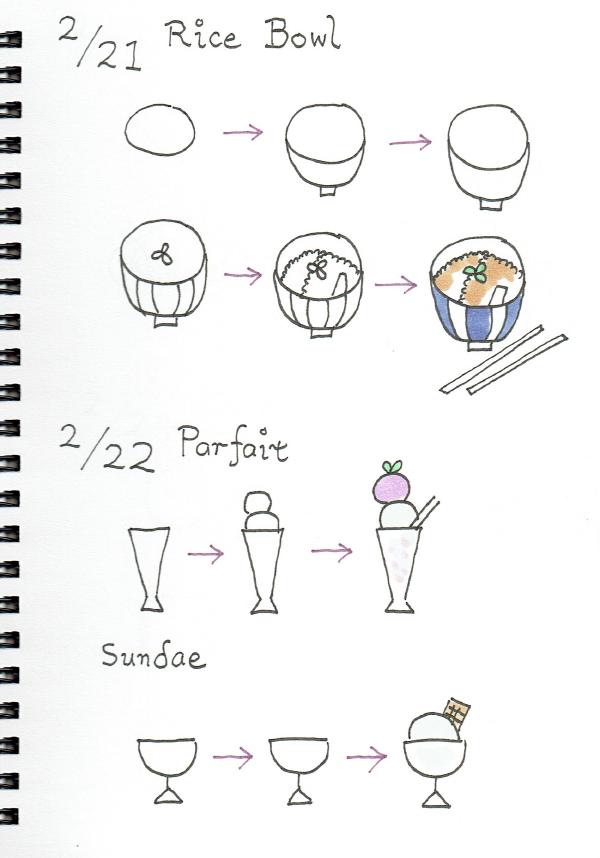 2/21 Rice Bowl
2/22 Parfait
Sundae